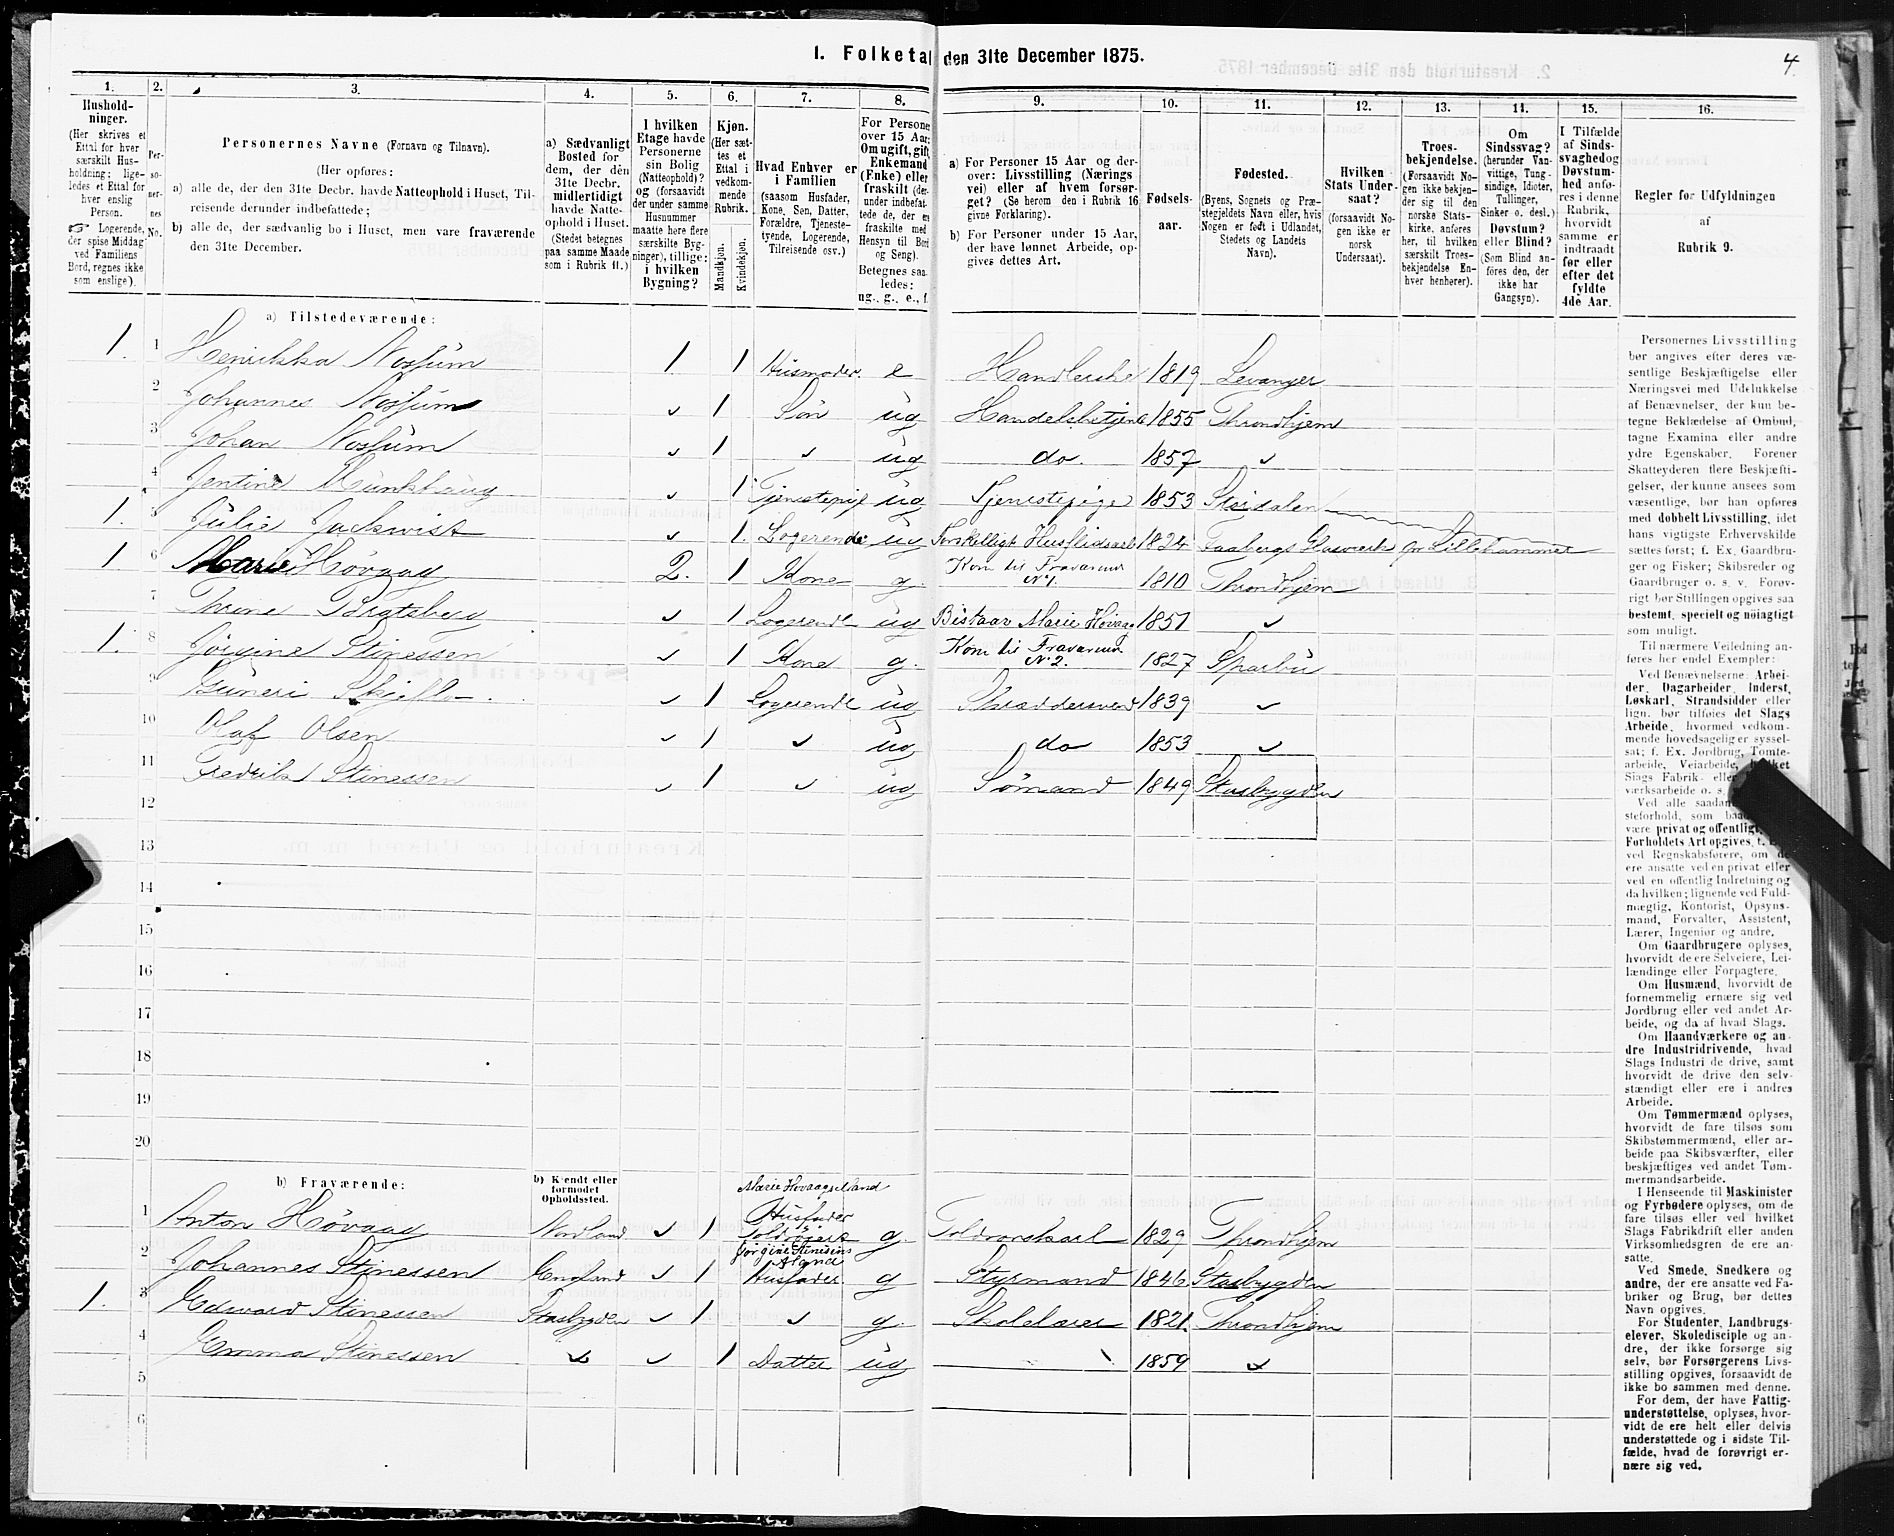 1. Folketal den 31te December 1875.
4.
1. 2. 3. 4. 5. 6. 7. 8. 9. 10. 11. 12. 13. 14. 15. 16.
Hushold-
ninger.
(Her skrives et
Ettal for hver
særskilt Hus-
holdning; lige-
ledes et Ettal for
hver enslig
Person.
☞ Logerende,
der spise Middag
ved Familiens
Bord, regnes ikke
som enslige).
Per-
so-
ner-
nes
No.
Personernes Navne (Fornavn og Tilnavn).
(Her opføres:
a) alle de, der den 31te Decbr. havde Natteophold i Huset, Til-
reisende derunder indbefattede;
b) alle de, der sædvanlig bo i Huset, men vare fraværende
den 31te December.
a) Sædvanligt
Bosted for
dem, der den
31te Decbr.
midlertidigt
havde Natte-
ophold i Huset.
(Stedet betegnes
paa samme Maade
som i Rubrik 11.)
I hvilken
Etage havde
Personerne
sin Bolig
(Natteophold)?
og (forsaavidt
der under samme
Husnummer
maatte høre flere
særskilte Byg-
ninger), tillige:
i hvilken
Bygning?
Kjøn.
(Her sæt-
tes et
Ettal i
vedkom-
mende
Rubrik.
Mandkjøn.
Kvindekjøn.
Hvad Enhver er
i Familien
(saasom Husfader,
Kone, Søn, Datter,
Forældre, Tjeneste-
tyende, Logerende,
Tilreisende osv.)
For Personer
over 15 Aar:
Om ugift, gift,
Enkemand
(Enke) eller
fraskilt (der-
under indbefat-
tede de, der ere
fraskilte med
Hensyn til Bord
og Seng).
Betegnes saa-
ledes:
ug., g., e., f.
a) For Personer 15 Aar og der-
over: Livsstilling (Nærings
vei) eller af hvem forsør-
get? (Se herom den i Rubrik 16
givne Forklaring).
b) For Personer under 15 Aar,
der have lønnet Arbeide, op-
gives dettes Art.
Fødsels-
aar.
Fødested.
(Byens, Sognets og Præ-
stegjeldets Navn eller, hvis
Nogen er født i Udlandet,
Stedets og Landets
Navn).
Hvilken
Stats Under-
saat?
(forsaavidt No-
gen ikke er
norsk
Undersaat).
Troes-
bekjendelse.
(Forsaavidt No-
gen ikke bekjen-
der sig til den
norske Stats-
kirke, anføres
her, til hvilken
særskilt Troes-
bekjendelse En-
hver henhører).
Om
Sindssvag?
(herunder Van-
vittige, Tung-
sindige, Idioter,
Tullinger,
Sinker o. desl.)
Døvstum?
eller Blind?
(Som Blind an-
føres den, der
ikke har
Gangsyn).
I Tilfælde
af Sinds-
svaghed og
Døvstum-
hed anfø-
res i denne
Rubrik,
hvorvidt
samme er
indtraadt
før eller
efter det
fyldte
4de Aar.
Regler for Udfyldningen
af
Rubrik 9.
a) Tilstedeværende:
1. 1 Henrikka Nossum 1. 1 Husmoder. e Handlerske 1819 Levanger
2 Johannes Nossum „ 1 Søn ug Handelsbetjent 1855 Throndhjem
3 Johan Nossum „ 1 „ ug do. 1857 „
4 Jentine Munkhaug „ 1 Tjenestepige ug Tjenestepige 1853 Størdalen
1. 5 Julie Jackwist „ 1. Logerende ug Forskelligt Husflidsarb 1824 Faabergs Glasværk pr Lillehammer
1 6 Marie Høvaag 2. 1 Kone g. Kone til Fraværende N°1. 1810 Throndhjem
7 Thrine Bratsberg „ 1 Logerende ug Bistaar Marie Høvaag 1851 „
1. 8 Jørgine Stinessen „ 1 Kone g. Kone til Fraværende N°2. 1827 Sparbu
Guneri Skjeflo „ 1 Logerende ug Skræddersvend 1839 „
10 Olaf Olsen „ 1 „ ug do 1853 „
11 Fredrik Stinessen „ 1 „ ug Sømand 1849 Stadsbygden
12
13
14
15
16
17
18
19
20
b) Fraværende:
b) Kjendt eller
formodet
Opholdssted.
1 Anton Høvaag Nordland „ 1 Marie Hovaags Mand Husfader g. Toldvorskarl 1829 Throndhjem
2 Johannes Stinessen England „ 1 Jørgine Stinesens Mand Husfader. g Styrmand 1846 Stadsbygden
1. 3 Edward Stinessen Stadsbygden „ 1 „ g. Skolelærer 1821. Throndhjem
4 Emma Stinessen „ „ 1 Datter ug 1859 „
5
6
Personernes Livsstilling
bør angives efter deres væ-
sentlige Beskjæftigelse eller
Næringsvei med Udelukkelse
af Benævnelser, der kun be-
tegne Beklædelse af Ombud,
tagne Examina eller andre
ydre Egenskaber. Forener
Skatteyderen flere Beskjæfti-
gelser, der kunne ansees som
væsentlige, bør han opføres
med dobbelt Livsstilling, idet
hans vigtigste Erhvervskilde
sættes først; f. Ex. Gaardbru-
ger og Fisker; Skibsreder og
Gaardbruger o. s. v. Forøv-
rigt bør Stillingen opgives saa
bestemt, specielt og nøiagtigt
som muligt.
Til nærmere Veiledning an-
føres her endel Exempler:
Ved Benævnelserne: Arbei-
der, Dagarbeider, Inderst,
Løskarl, Strandsidder eller
lign. bør tilføies det Slags
Arbeide, hvormed vedkom-
mende hovedsagelig er syssel-
sat; f. Ex. Jordbrug, Tomte-
arbeide, Veiarbeide, hvilket
Slags Fabrik- eller
værksarbeide o. s.
Ved alle saadan
steforhold, som baade
være privat og offentligt,
Forholdets Art opgives, f. Ex.
ved Regnskabsførere, om de
ere ansatte ved en privat eller
ved en offentlig Indretning og
da hvilken; lignende ved Fuld-
mægtig, Kontorist, Opsyns-
mand, Forvalter, Assistent,
Lærer, Ingeniør og andre.
Om Gaardbrugere oplyses,
hvorvidt de ere Selveiere, Lei-
lændinge eller Forpagtere.
Om Husmænd, hvorvidt de
fornemmelig ernære sig ved
Jordbrug eller ved andet Ar-
beide, og da af hvad Slags.
Om Haandværkere og an-
dre Industridrivende, hvad
Slags Industri de drive, samt
hvorvidt de drive den selv-
stændigt eller ere i andres
Arbeide.
Om Tømmermænd oplyses,
hvorvidt de fare tilsøs som
Skibstømmermænd, eller ar-
beide paa Skibsværfter, eller
beskjæftiges ved andet Tøm-
mermandsarbeide.
I Henseende til Maskinister
og Fyrbødere oplyses, om de
fare tilsøs eller ved hvilket
Slags Fabrikdrift eller anden
Virksomhedsgren de ere an-
satte.
Ved Smede, Snedkere og
andre, der ere ansatte ved Fa-
briker og Brug, bør dettes
Navn opgives.
For Studenter, Landbrugs-
elever, Skoledisciple og an-
dre, der ikke forsørge sig
selv, bør Forsørgerens Livs-
stilling opgives, forsaavidt de
ikke bo sammen med denne.
For dem, der have Fattig-
understøttelse, oplyses, hvor-
vidt de ere helt eller delvis
understøttede og i sidste Til-
fælde, hvad de forøvrigt er-
nære sig ved.